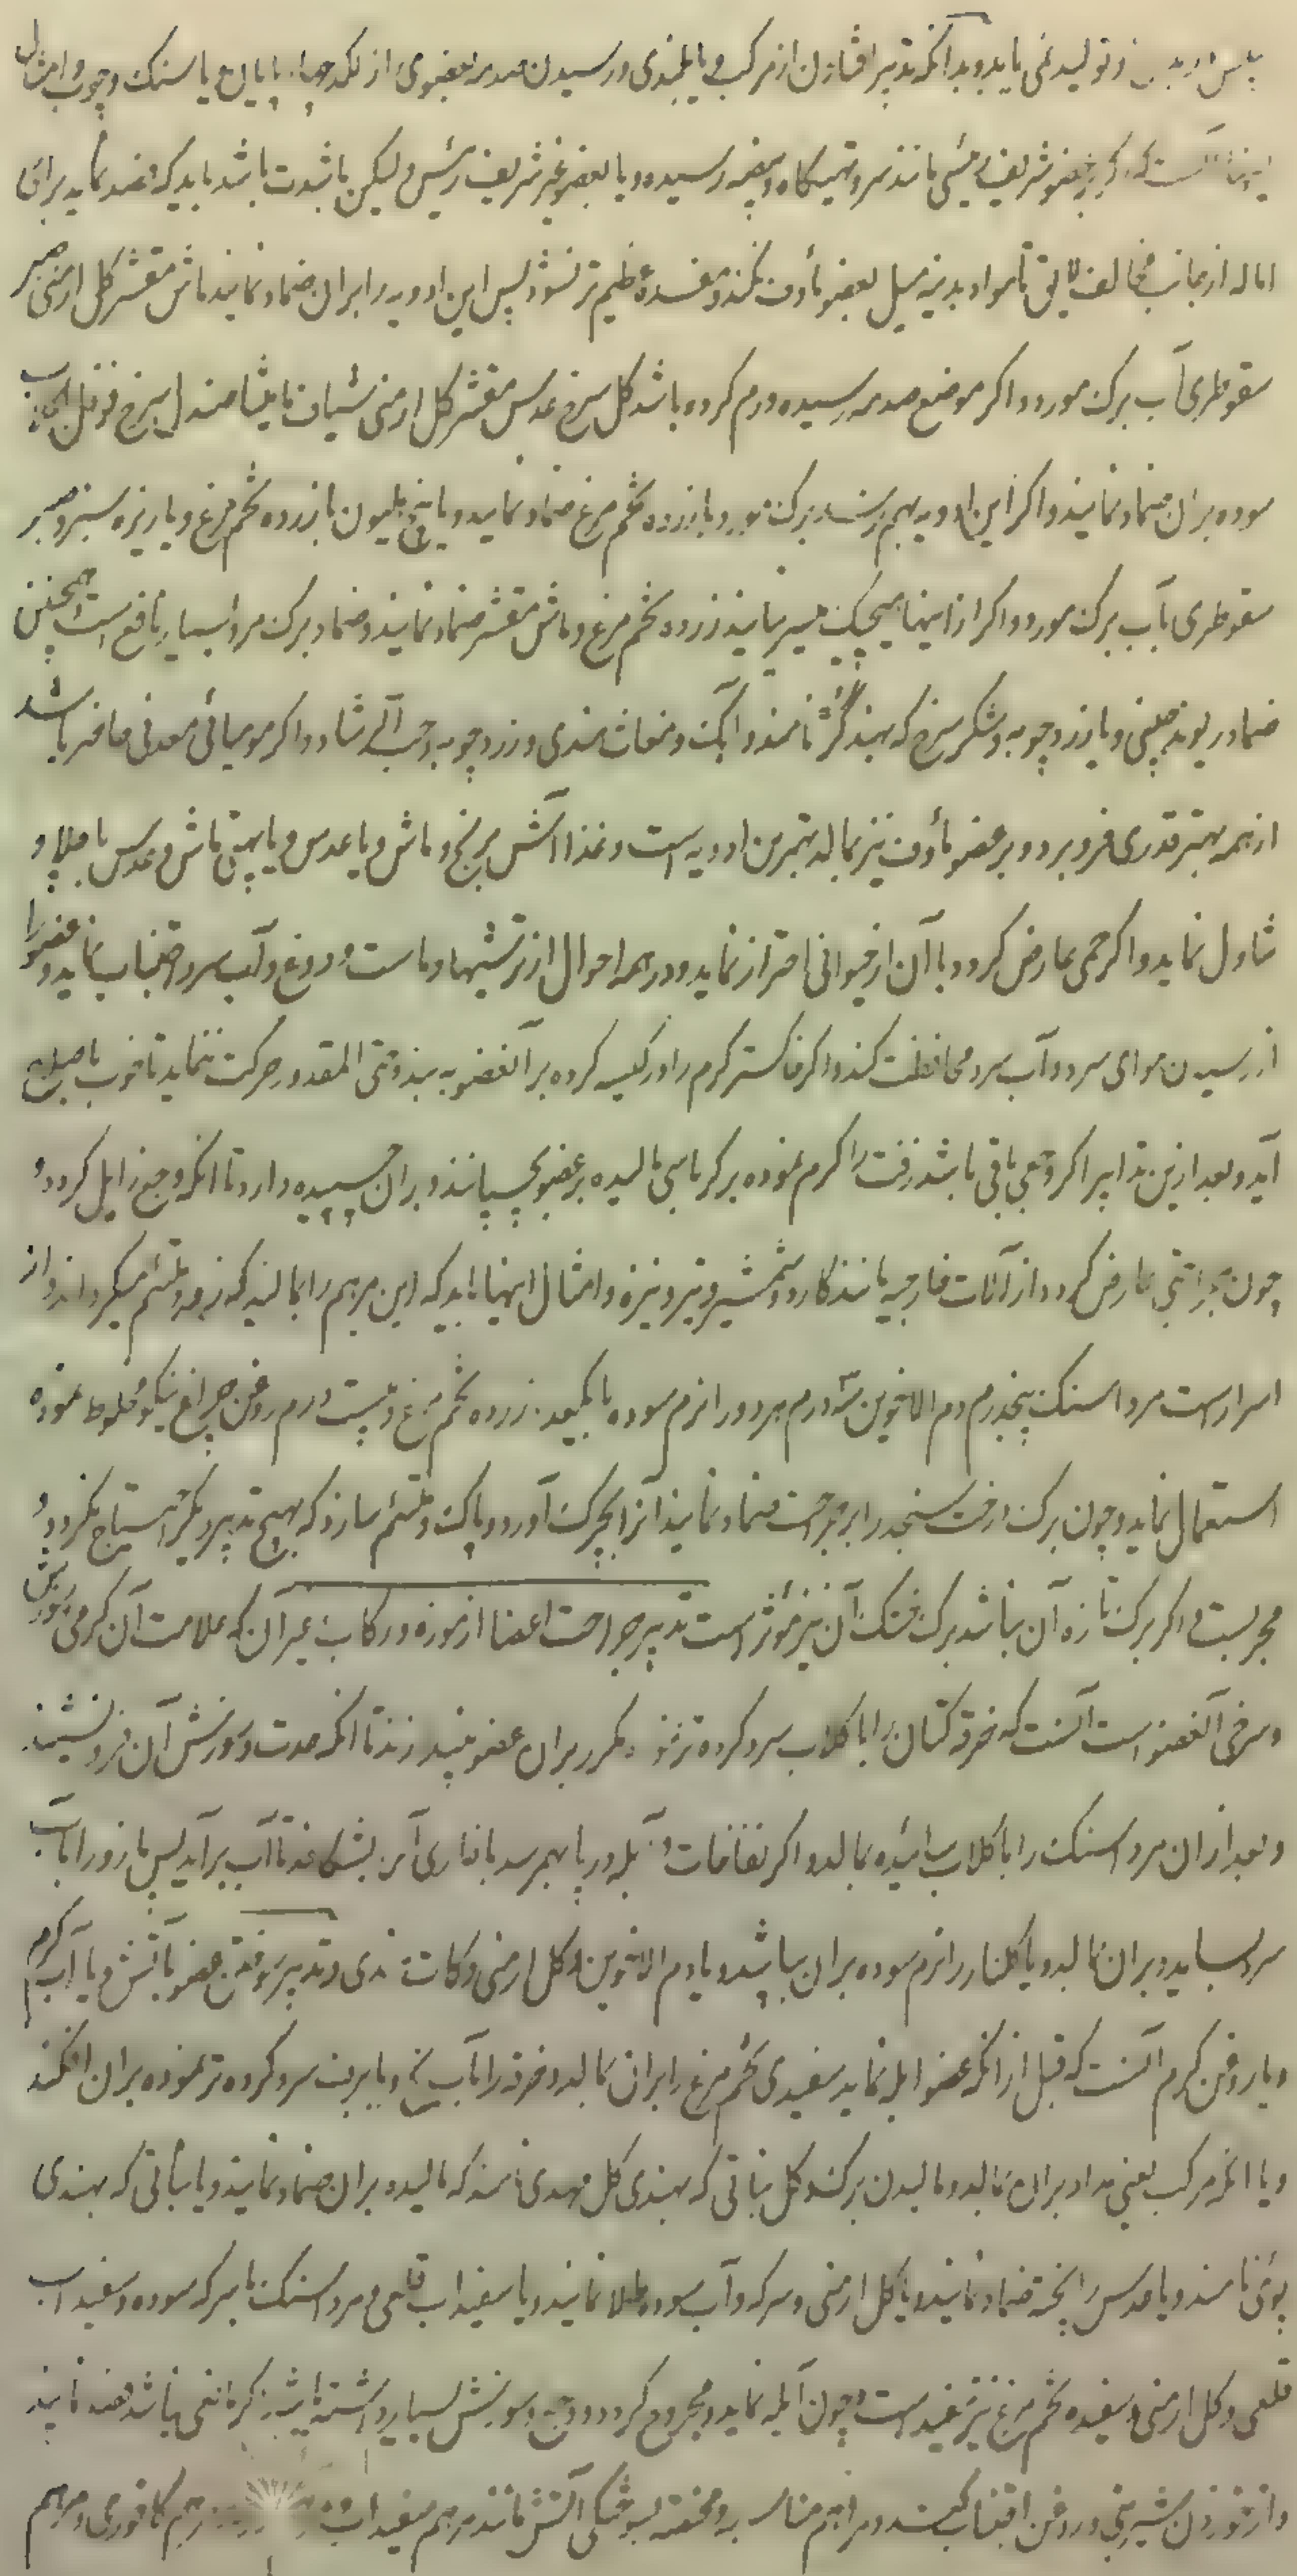 و تولید نمی یابد و بدانکه تدبیر افتادن از مرکب و یا بلندی و رسیدن صدمه بعضوی از لکد چهارپایان و یا سنک و چوب و امثال
اینها آنست که اگر بعضو شریف رئیسی مانند سر و تهیکاه و بیضه رسیده و یا بعضو غیر شریف رئیس و لیکن باشدت باشد باید که فصد نماید برای
اماله از جانب مخالف لایق تا مواد بدنیه میل بعضو مأوف نکند و مفسدهٔ عظیم تر نشود پس این ادویه را بران ضماد نمایند ماش مقشر کل ارمنی صبر
سقوطری آب برک مورد و اکر موضع صدمه رسیده ورم کرده باشد کل سرخ عدس مقشر کل ارمنی شیاف مامیثا صندل سرخ فوفل
سوده بران ضماد نمایند و اکر این ادویه بهم نرسد برک مورد با زرده تخم مرغ ضماد نماید و یا بیخ بلیون با زرده تخم مرغ و یا ریزه سبز و صبر
سقوطری بآب برک مورد و اکر از اینها هیچیک میسر نیاید زرده تخم مرغ و ماش مقشر ضماد نمایند و ضماد برک مرو بسیار نافع است همچنین
ضماد ریوند چینی و یا زردچوبه و شکر سرخ که بهندی گُر نامند و آهک و مغاث هندی و زردچوبه و حب الرشاد و اکر مومیائی معدنی حاضر باشد
از همه بهتر قدری فرو برد و بر عضو مأوف نیز بمالد بهترین ادویه است و غذا آش برنج و ماش و یا عدس و یا بهتی ماش و عدس با پلاو
تناول نماید و اکر حمی عارض کردد با آن از حیوانی احتراز نماید و در همه احوال از ترشیها و ماست و دوغ و آب سرد اجتناب نماید و عضو را
از رسیدن هوای سرد و آب سرد محافظت کند و اکر خاکستر کرم را در کیسه کرده بر آنعضو به بندد و حتی المقدور حرکت ننماید تا خوب باصلاح
آید و بعد ازین تدابیر اکر وجعی باقی باشد زفت را کرم نموده بر کرباسی مالیده بر عضو بچسپانند و بران چسپیده دارد تا انکه وجع زایل کردد و
چون جراحتی عارض کردد از آلات خارجیه مانند کارد و شمشیر و تیر و نیزه و امثال اینها باید که این مرهم را بمالند که زود ملتئم میکرداند و از
اسرار است مرداسنک پنجدرم دم الاخوین سه درم هر دو را نرم سوده با یکعدد زرده تخم مرغ و بیست درم روغن چراغ نیکو مخلوط نموده
استعمال نماید و چون برک درخت سنجد را بر جراحت ضماد نمایند آنرا بچرک آورد و پاک و ملتئم سازد که بهیچ تدبیر دیکر احتیاج نکردد و
مجربست و اکر برک تازه آن نباشد برک خشک آن نیز مؤثر است تدبیر جراحت اعضا از موزه و رکاب و غیر آن که علامت آن کرمی و سوزش
و سرخی آنعضو است آنست که خرقه کتان را با کلاب سرد کرده تر نموده مکرر بران عضو نهند تا انکه حدت و سوزش آن فرو نشیند
و بعد ازان مرداسنک را با کلاب سائیده بمالد و اکر نفاخات و آبله در پا بهم رسد با خاری آن بشکافد تا آب برآید پس مازو را با آب
سرد بساید و بران بمالد و یا کلنار را نرم سوده بران بپاشد و یا دم الاخوین و کل ارمنی و کات هندی و تدبیر سوختن عضو بآتش و یا آب کرم
و یا روغن کرم آنست که قبل از انکه عضو آبله نماید سفیدی تخم مرغ را بران بمالد و خرقه را بآب یخ و یا برف سرد کرده تر نموده بران افکند
و یا انکه مرکب یعنی مداد بران بمالد و مالیدن برک و کل نباتی که بهندی کل مهدی نامند که مالیده بران ضماد نمایند و یا نباتی که بهندی
پوئی نامند و یا عدس را پخته ضماد نمایند و یا کل ارمنی و سرکه و آب سوده طلا نمایند و یا سفیداب قلعی و مرداسنک با سرکه سوده و سفیداب
قلعی و کل ارمنی و سفیده تخم مرغ نیز مفید است و چون آبله نماید و مجروح کردد و وجع و سوزش بسیار داشته باشد اکر مانعی نباشد فصد نمایند
و از خوردن شیرینی و روغن اجتناب کنند و مراهم مناسبه مخصوصه بسوختکی آتش مانند مرهم سفیداب و مرهم کافوری و مرهم